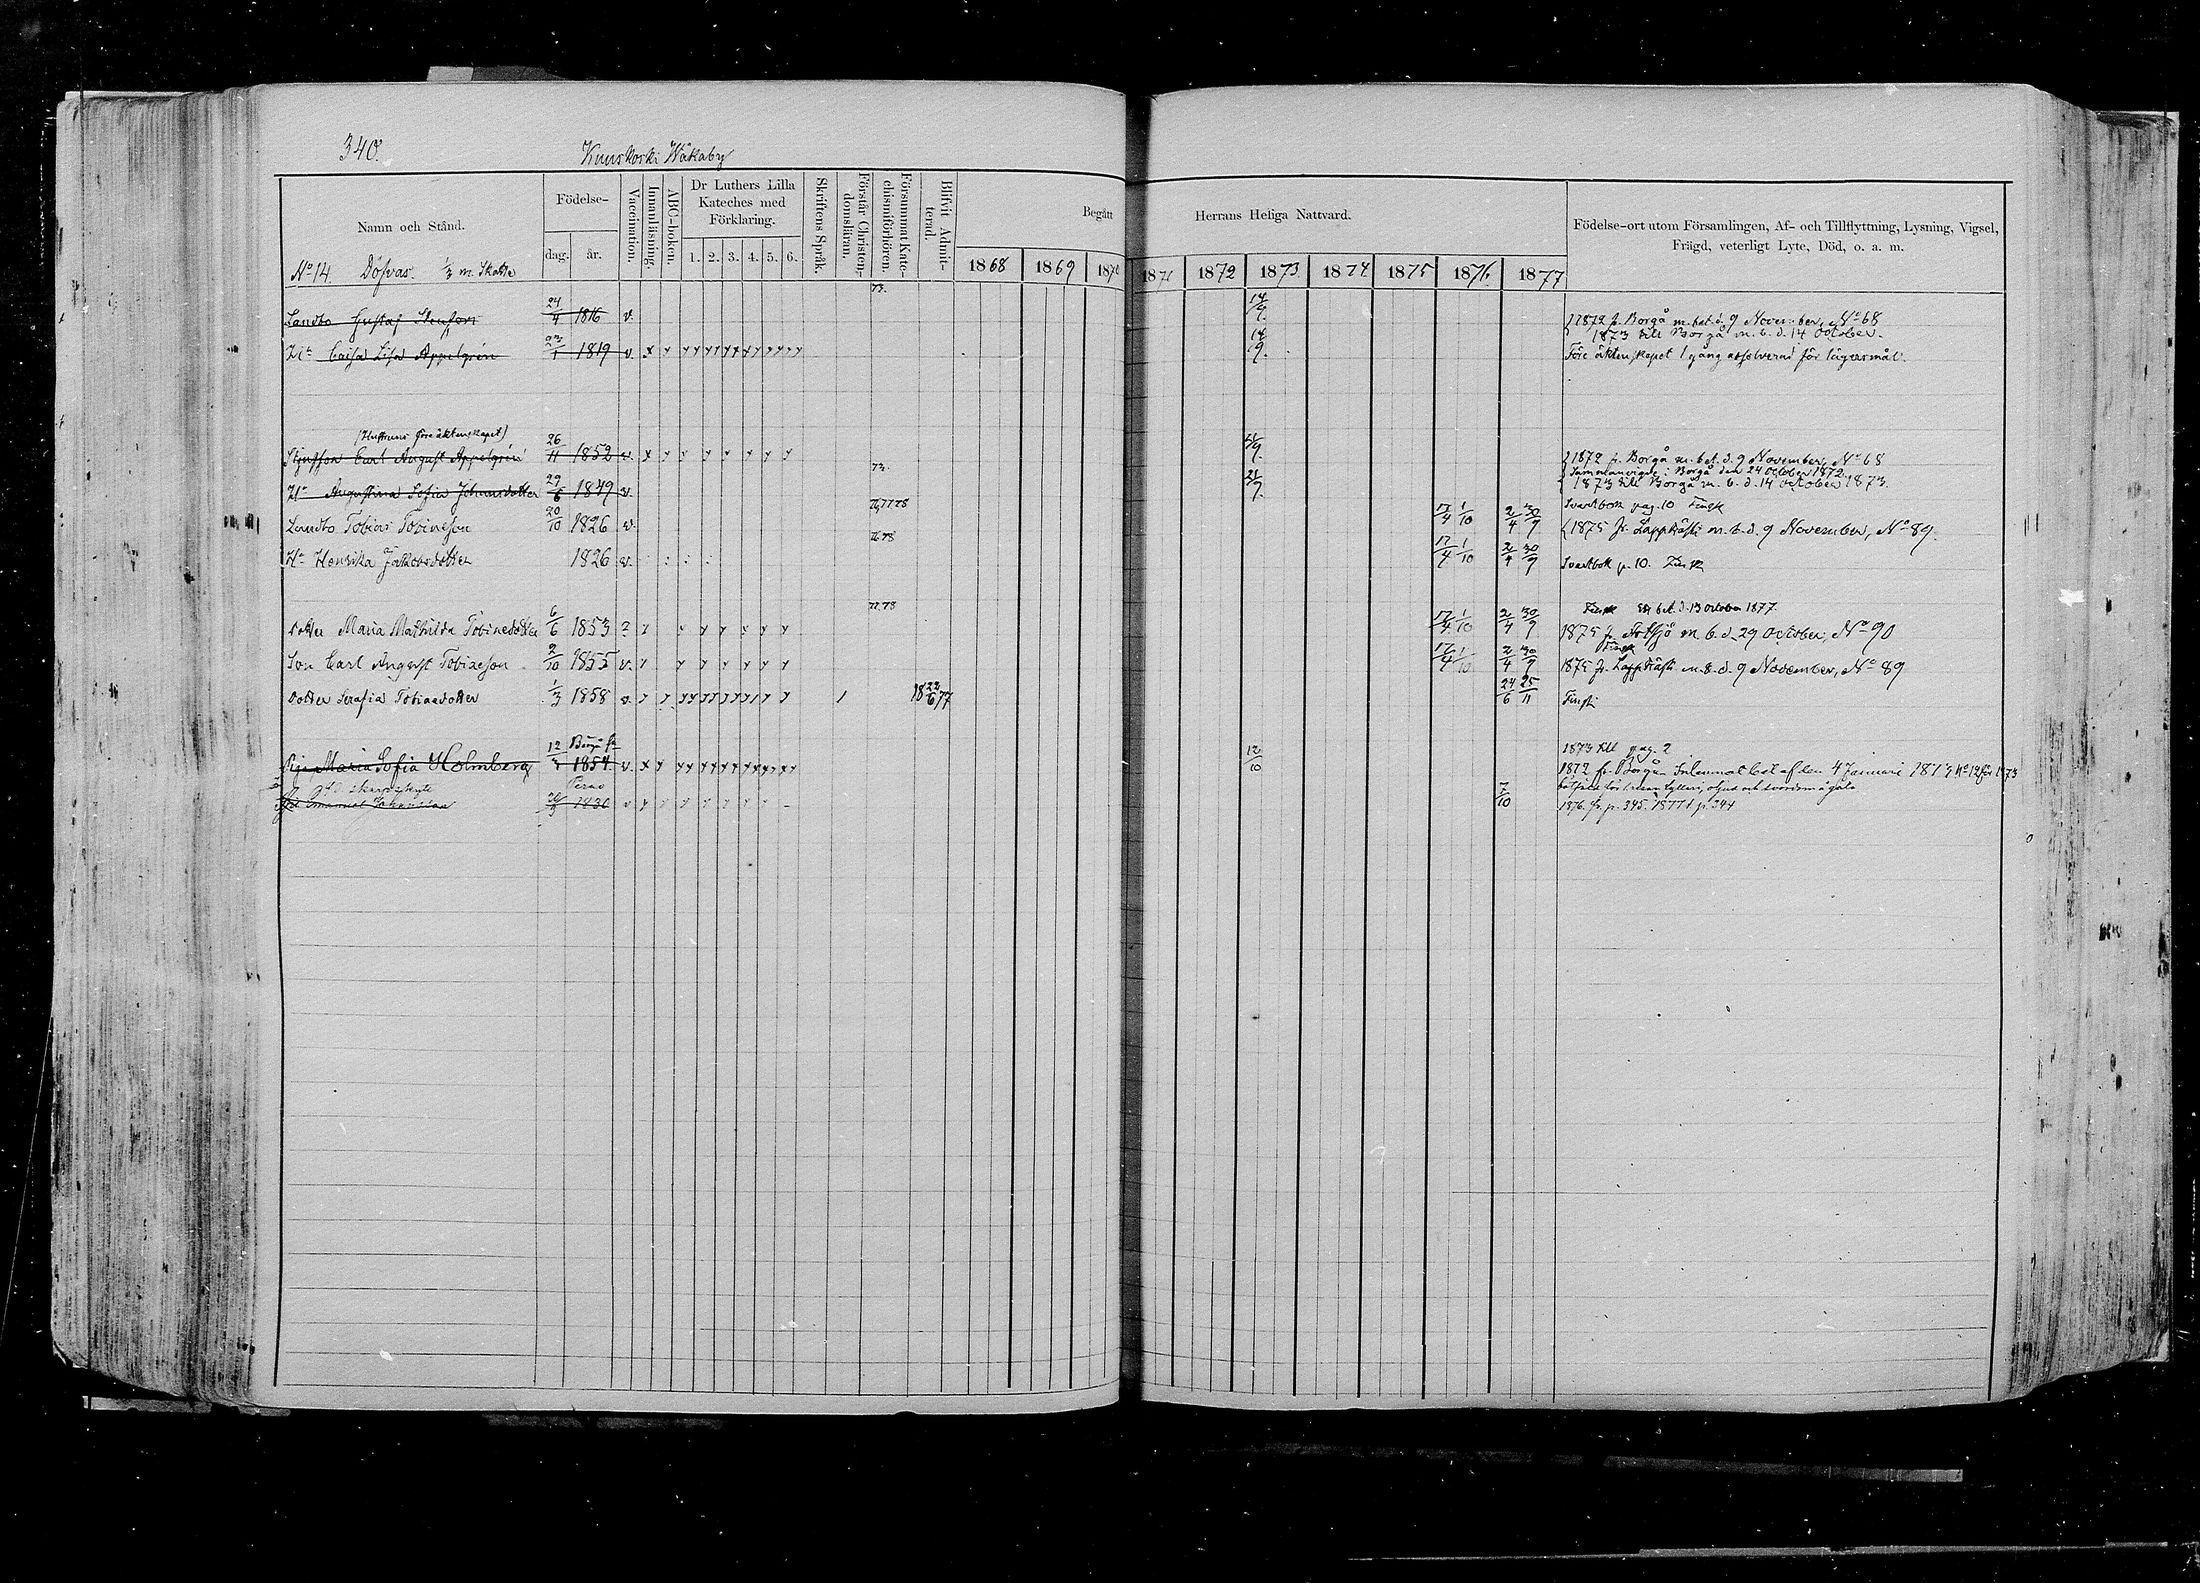 340.
Kuuskoski Wåkaby
Namn och Stånd.
Födelse-
dag. år.
Vaccination.
Innanläsning.
ABC-boken.
Dr Luthers Lilla Kateches med Förklaring.
1. 2. 3. 4. 5. 6.
Skriftens Språk.
Förstår Christendomsläran.
Försummat Katechismiförhören.
Blifvit Admitterad.
Begått Herrans Heliga Nattvard.
1868 1869 1870 1871 1872 1873 1874 1875 1876 1877
Födelse-ort utom Församlingen, Af- och Tillflyttning, Lysning, Vigsel,
Frägd, veterligt Lyte, Död, o. a. m.
No 14 Döfvas. 1/3 m. Skatte
73.
Landbo Gustaf Stenfors 24/4 1816 v. 14/9. 1872 fr. Borgå m. bet. d. 9 November, No 68
1873 till Borgå m. b. d. 14 October.
H:u Caisa Lisa Appelgrén 23/1 1819 v. 14/9. Före äktenskapet 1 gång absolverad för lägersmål.
(Hustruns före äktenskapet)
Styfson Carl August Appelgrén 26/11 1852 v. 21/9. 1872 fr. Borgå m. bet. d. 9 November, No 68
73.
Sammanvigde i Borgå den 24 October 1872.
H:u Augustina Sofia Johansdotter 29/8 1849 v. 21/9. 1873 till Borgå m. b. d. 14 October 1873.
76,77.78
Svartbok pag. 10 Finsk
Landbo Tobias Tobiaeson 20/10 1826 v. 17/4 1/10 2/4 30/9 1875 fr. Lappträsk m. b. d. 9 November, No 89.
76 78
H:u Henrika Jakobsdotter 1826 v. 17/4 1/10 2/4 30/9 Svartbok p. 10. Finsk
77.78
Finsk bet. d. 13 October 1877.
dotter Maria Mathilda Tobiaedotter 6/6 1853 ? 17/4 1/10 2/4 30/9 1875 fr. m. b. d. 29 October, No 90
Finsk
Son Carl August Tobiaeson 2/10 1855 v. 17/4 1/10 2/4 30/9 1875 fr. Lappträsk m. b. d. 9 November, No 89
dotter Serafia Tobiaedotter 1/3 1858 v. 1 18 22/6 77 24/6 25/11 Finsk
1873 till pag. 2
Borgå
Pig. Maria Sofia Holmberg 12/3 1854 v. 12/10 1872 fr. Borgå. Inlemnat bet. af den 4 Januari 1873 No 12 för 1873
Perno
Emanuel Johansson 1830 7/10 1876. fr. p. 345. 1877 t. p. 344